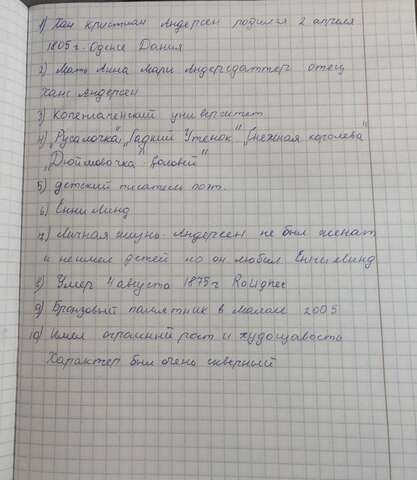 1) Хан кристиан Андерсен родился 2 апреля
1805 г. Оденс Дания
2) Мать Анна Мари Андерсдаттер отец
Ханс Андерсен
3) Копенгагенский университет
4) „Русалочка" „Гадкий Утёнок" „Снежная королева"
„Дюймовочка" Соловей"
5) детский писатель поэт.
6) Енни Линд
7) Личная жизнь. Андерсен не был женат
и неимел детей но он любил Енни Линд
8) Умер 4 августа 1875 г.
9) Бронзовый памятник в Малаге 2005
10) Имел огромный рост и худощавость
Характер был очень скверный